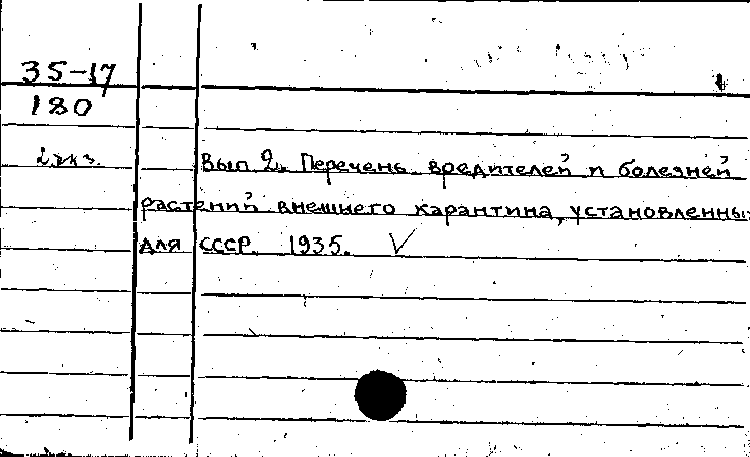 35-17
180
2 экз.
Вып. 2. Перечень вредителей и болезней
растений внешнего карантина, установленны
для СССР. 1935.